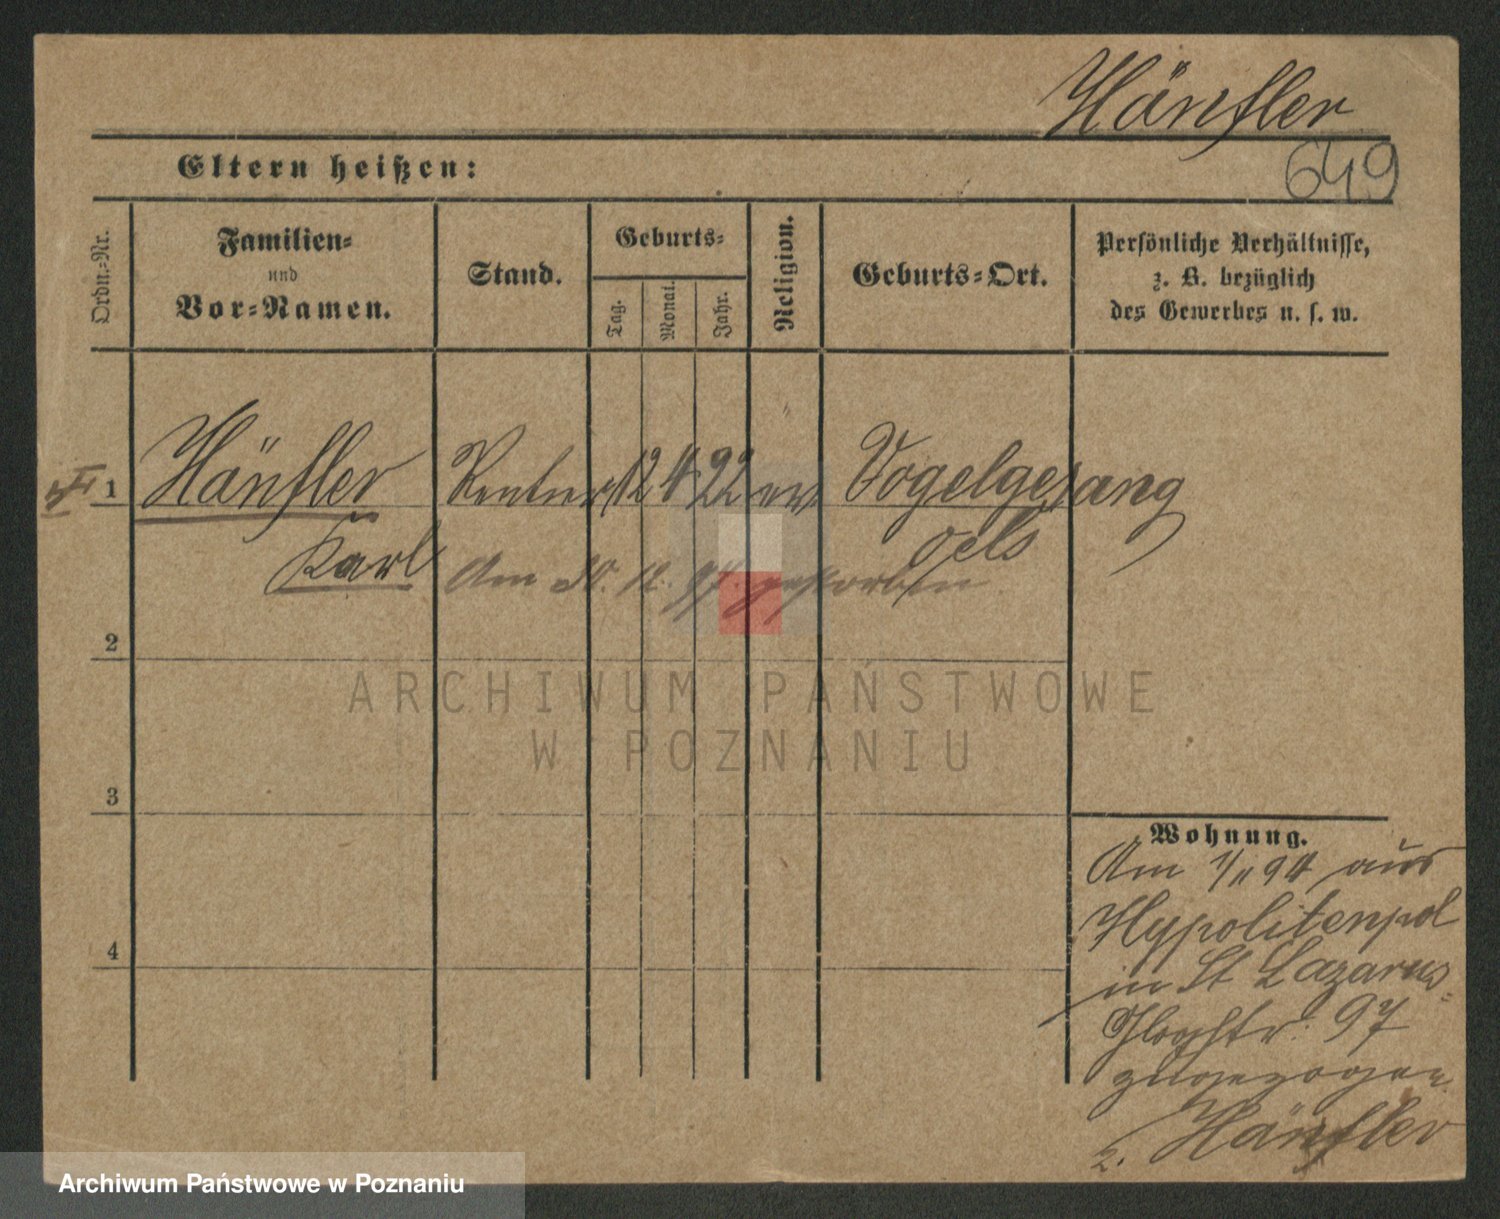 Hänfler
649
Eltern heißen:
Ordn.-Nr.
Familien-
und
Vor-Namen.
Stand.
Geburts-
Tag.
Monat.
Jahr.
Religion.
Geburts-Ort.
Persönliche Verhältnisse,
z. B. bezüglich
des Gewerbes u. s. w.
1 Hänfler Rentner 12 4 22 ev Vogelgesang
Karl Oels
Am 30. 12. 97. gestorben
2
ARCHIWUM PAŃSTWOWE
W POZNANIU
3
Wohnung.
Am 1/11 94 aus
Hyppolitenpol
in St Lazarus
97
zugezogen
4
z. Hänfler
Archiwum Państwowe w Poznaniu